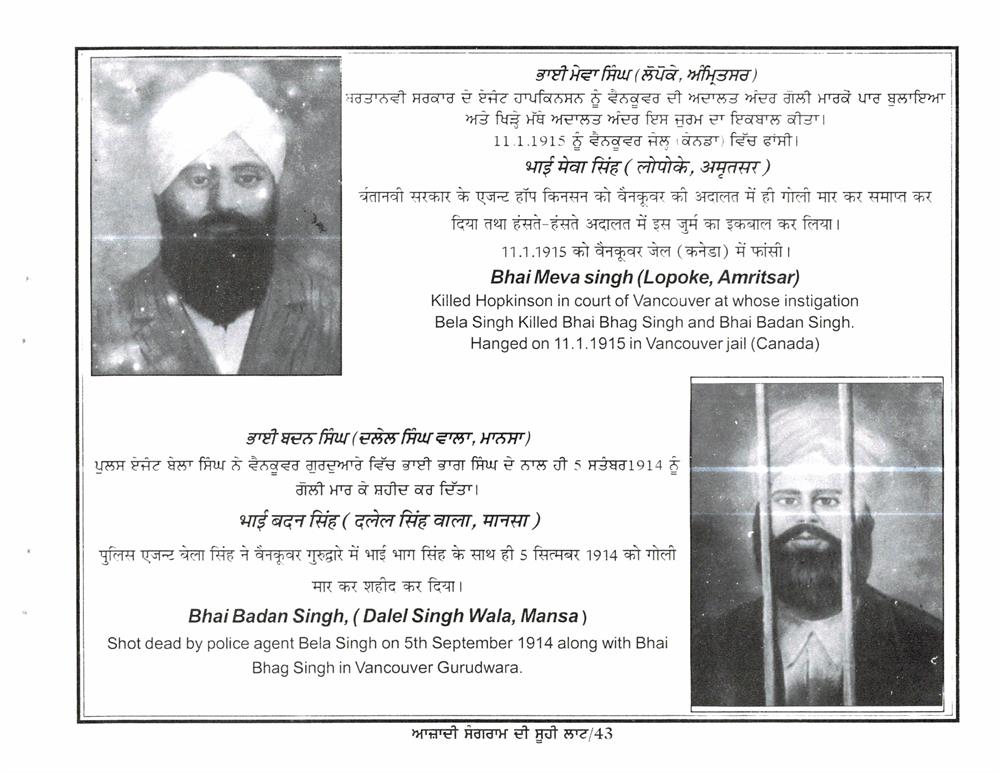 ਭਾਈ ਮੇਵਾ ਸਿੰਘ (ਲੋਪੋਕੇ, ਅੰਮ੍ਰਿਤਸਰ)
ਬਰਤਾਨਵੀ ਸਰਕਾਰ ਦੇ ਏਜੰਟ ਹਾਪਕਿਨਸਨ ਨੂੰ ਵੈਨਕੂਵਰ ਦੀ ਅਦਾਲਤ ਅੰਦਰ ਗੋਲੀ ਮਾਰਕੇ ਪਾਰ ਬੁਲਾਇਆ
ਅਤੇ ਖਿੜ੍ਹੇ ਮੱਥੇ ਅਦਾਲਤ ਅੰਦਰ ਇਸ ਜੁਰਮ ਦਾ ਇਕਬਾਲ ਕੀਤਾ।
11.1.1915 ਨੂੰ ਵੈਨਕੂਵਰ ਜੇਲ੍ਹ (ਕੇਨਡਾ) ਵਿੱਚ ਫਾਂਸੀ।
भाई मेवा सिंह ( लोपोके, अमृतसर )
र्बतानवी सरकार के एजन्ट हॉप किनसन को वैनकूवर की अदालत में ही गोली मार कर समाप्त कर
दिया तथा हंसते-हंसते अदालत में इस जुर्म का इकबाल कर लिया।
11.1.1915 को वैनकूवर जेल (कनेडा) में फांसी।
Bhai Meva singh (Lopoke, Amritsar)
Killed Hopkinson in court of Vancouver at whose instigation
Bela Singh Killed Bhai Bhag Singh and Bhai Badan Singh.
Hanged on 11.1.1915 in Vancouver jail (Canada)
ਭਾਈ ਬਦਨ ਸਿੰਘ (ਦਲੇਲ ਸਿੰਘ ਵਾਲਾ, ਮਾਨਸਾ)
ਪੁਲਸ ਏਜੰਟ ਬੇਲਾ ਸਿੰਘ ਨੇ ਵੈਨਕੂਵਰ ਗੁਰਦੁਆਰੇ ਵਿੱਚ ਭਾਈ ਭਾਗ ਸਿੰਘ ਦੇ ਨਾਲ ਹੀ 5 ਸਤੰਬਰ1914 ਨੂੰ
ਗੋਲੀ ਮਾਰ ਕੇ ਸ਼ਹੀਦ ਕਰ ਦਿੱਤਾ।
भाई बदन सिंह ( दलेल सिंह वाला, मानसा )
पुलिस एजन्ट बेला सिंह ने वैनकूवर गुरुद्वारे में भाई भाग सिंह के साथ ही 5 सितम्बर 1914 को गोली
मार कर शहीद कर दिया।
Bhai Badan Singh, ( Dalel Singh Wala, Mansa )
Shot dead by police agent Bela Singh on 5th September 1914 along with Bhai
Bhag Singh in Vancouver Gurudwara.
ਆਜ਼ਾਦੀ ਸੰਗਰਾਮ ਦੀ ਸੂਹੀ ਲਾਟ/43